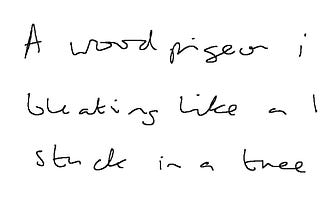 A wood pigeon i
bleating like a
stuck in a tree